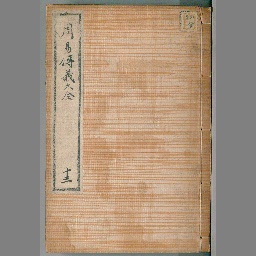 周易傳義大全
十三